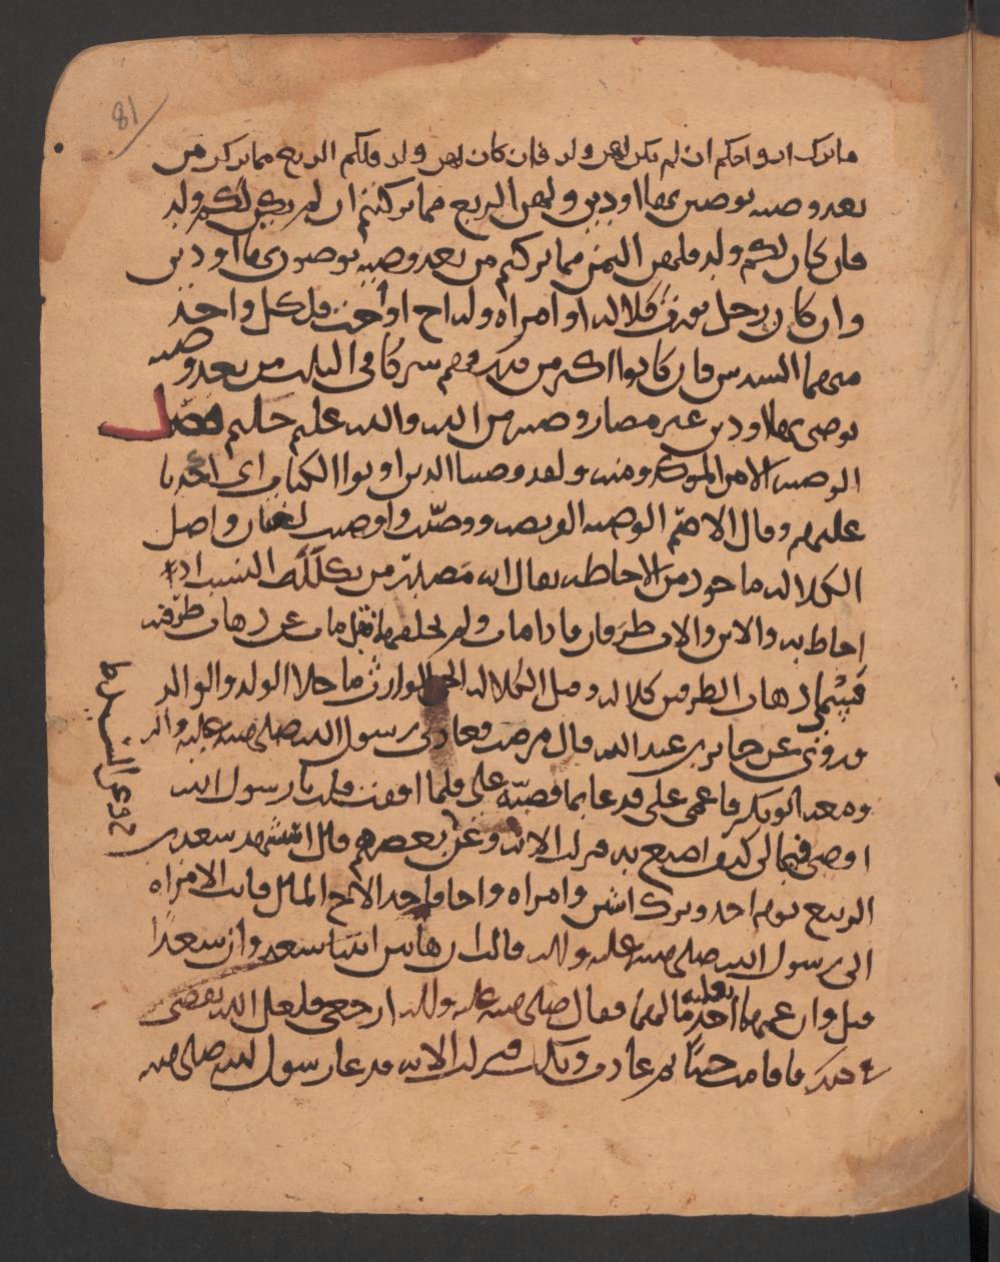 81
ما ترك ازواجكم ان لم يكن لهن ولد فان كان لهن ولد فلكم الربع مما تركن من
بعد وصيه يوصين بها او دين ولهن الربع مما تركتم ان لم يكن لكم ولد
فان كان لكم ولد فلهن الثمن مما تركتم من بعد وصيه توصون بها او دين
وان كان رجل يورث كلاله او امراه وله اخ او اخت فلكل واحد
منهما السدس فان كانوا اكثر من ذلك فهم شركا في الثلث من بعد وصيه
يوصى بها او دين غير مضار وصيه من الله والله عليم حليم فصل
الوصيه الامر الموكد ومنه ولقد وصينا الذين اوتوا الكتاب اي اكدنا
عليهم وقال الاصم الوصيه الفريضه ووصيت واوصيت لغتان واصل
الكلاله ماخوذ من الاحاطه يقال انه مصدر من تكلله النسب اذا
احاط به والابن والاب طرفان فاذا مات ولم يخلفهما فقد مات عن ذهاب طرفيه
فسمي ذهاب الطرفين كلاله وقيل الكلاله الحي الوارث ما خلا الولد والوالد
وروي عن جابر بن عبد الله قال مرضت فعادني رسول الله صلى الله عليه واله
ومعه ابو بكر فاغمي علي فدعا بما فصبه علي فلما افقت قلت يا رسول الله
اوصي في مالي كيف اصنع به فنزلت الايه وعن بعضهم قال استشهد سعد بن
الربيع يوم احد وترك ابنتين وامراه واخا فاخذ الاخ المال فاتت الامراه
الى رسول الله صلى الله عليه واله وقالت ان هاتين ابنتا سعد وان سعدا
قتل وان عمهما اخذ مالهما فقال صلى الله عليه واله ارجعي فلعل الله يقضي
في ذلك فاقامت حينا ثم عادت وبكت فنزلت الايه فدعا رسول الله صلى الله